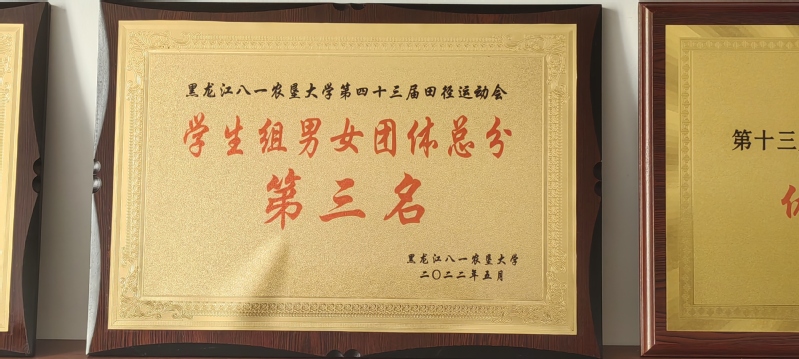 黑龙江八一农垦大学第四十三届田径运动会
学生组男女团体总分
第三名
黑龙江八一农垦大学
二〇二二年五月
第十三